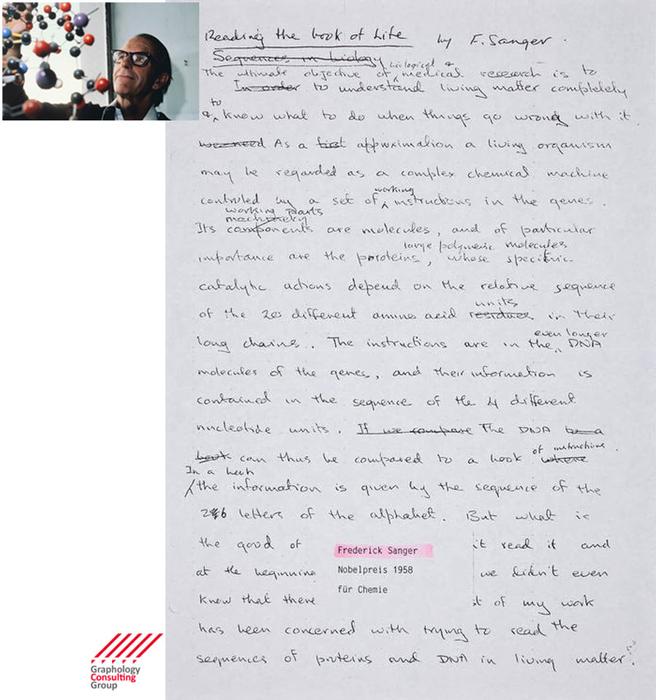 Reading the book of Life by F. Sanger.
Sequences in biology
The ultimate objective of biological & medical research is to
In order to understand living matter completely
& to know what to do when things go wrong with it.
As a first approximation a living organism
may be regarded as a complex chemical machine
controlled by a set of working instructions in the genes.
working parts
machinery
Its components are molecules, and of particular
importance are the proteins, large polymeric molecules whose specific
catalytic actions depend on the relative sequence
of the 20 different amino acid residues units in their
long chains. The instructions are in the even longer DNA
molecules of the genes, and their information is
contained in the sequence of the 4 different
nucleotide units. If we compare The DNA be a
book can thus be compared to a book where of instructions.
In a book
the information is given by the sequence of the
26 letters of the alphabet. But what is
the good of it read it and
at the beginning we didn't even
know that there of my work
has been concerned with trying to read the
sequences of proteins and DNA in living matter.
Frederick Sanger
Nobelpreis 1958
für Chemie
Graphology
Consulting
Group